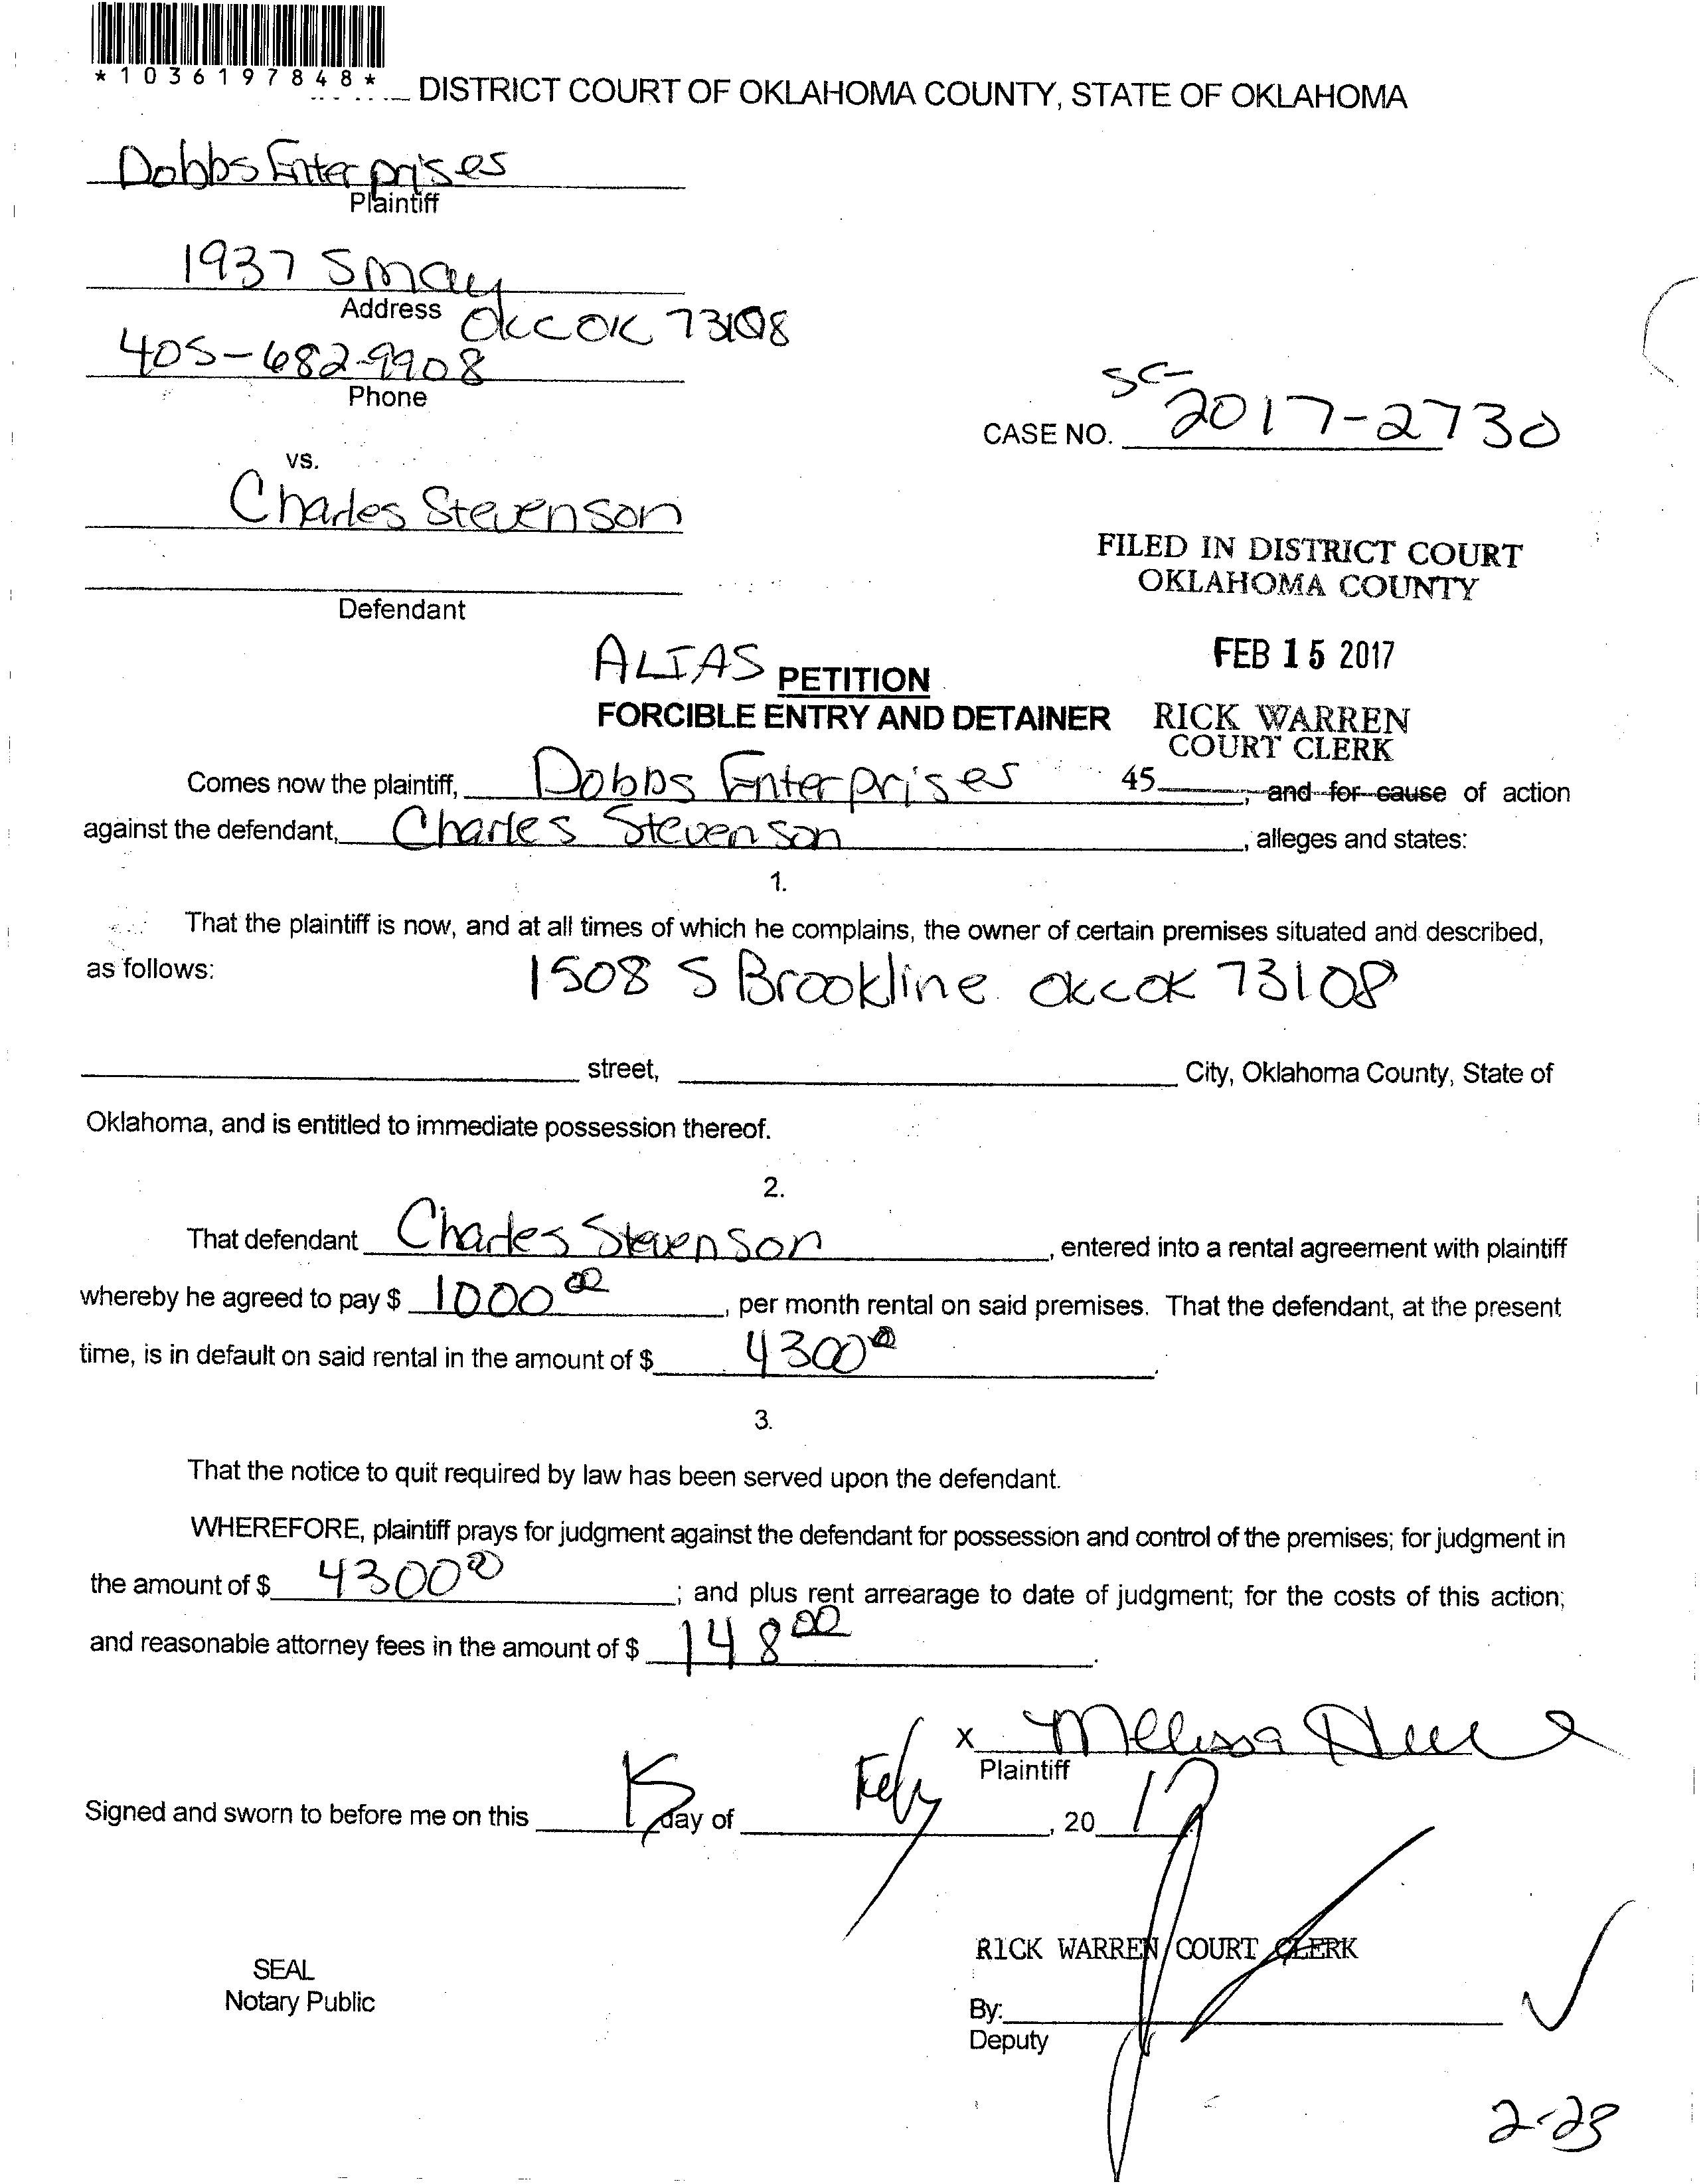 *1036197848*
DISTRICT COURT OF OKLAHOMA COUNTY, STATE OF OKLAHOMA
Dobbs Enterprises
Plaintiff
1937 S May
Address
OKC OK 73108
405-682-9908
Phone
SC-
CASE NO. 2017-2730
vs.
Charles Stevenson
Defendant
FILED IN DISTRICT COURT
OKLAHOMA COUNTY
FEB 15 2017
RICK WARREN
COURT CLERK
45
ALIAS PETITION
FORCIBLE ENTRY AND DETAINER
Comes now the plaintiff, Dobbs Enterprises, and for cause of action
against the defendant, Charles Stevenson, alleges and states:
1.
That the plaintiff is now, and at all times of which he complains, the owner of certain premises situated and described,
as follows: 1508 S Brookline OKC OK 73108
street, City, Oklahoma County, State of
Oklahoma, and is entitled to immediate possession thereof.
2.
That defendant Charles Stevenson, entered into a rental agreement with plaintiff
whereby he agreed to pay $ 1000 00, per month rental on said premises. That the defendant, at the present
time, is in default on said rental in the amount of $ 4300 00.
3.
That the notice to quit required by law has been served upon the defendant.
WHEREFORE, plaintiff prays for judgment against the defendant for possession and control of the premises; for judgment in
the amount of $ 4300 00; and plus rent arrearage to date of judgment; for the costs of this action;
and reasonable attorney fees in the amount of $ 148 00.
x Melissa
Plaintiff
Signed and sworn to before me on this 15 day of Feb, 20 17
RICK WARREN COURT CLERK
SEAL
Notary Public
By:
Deputy
2-23